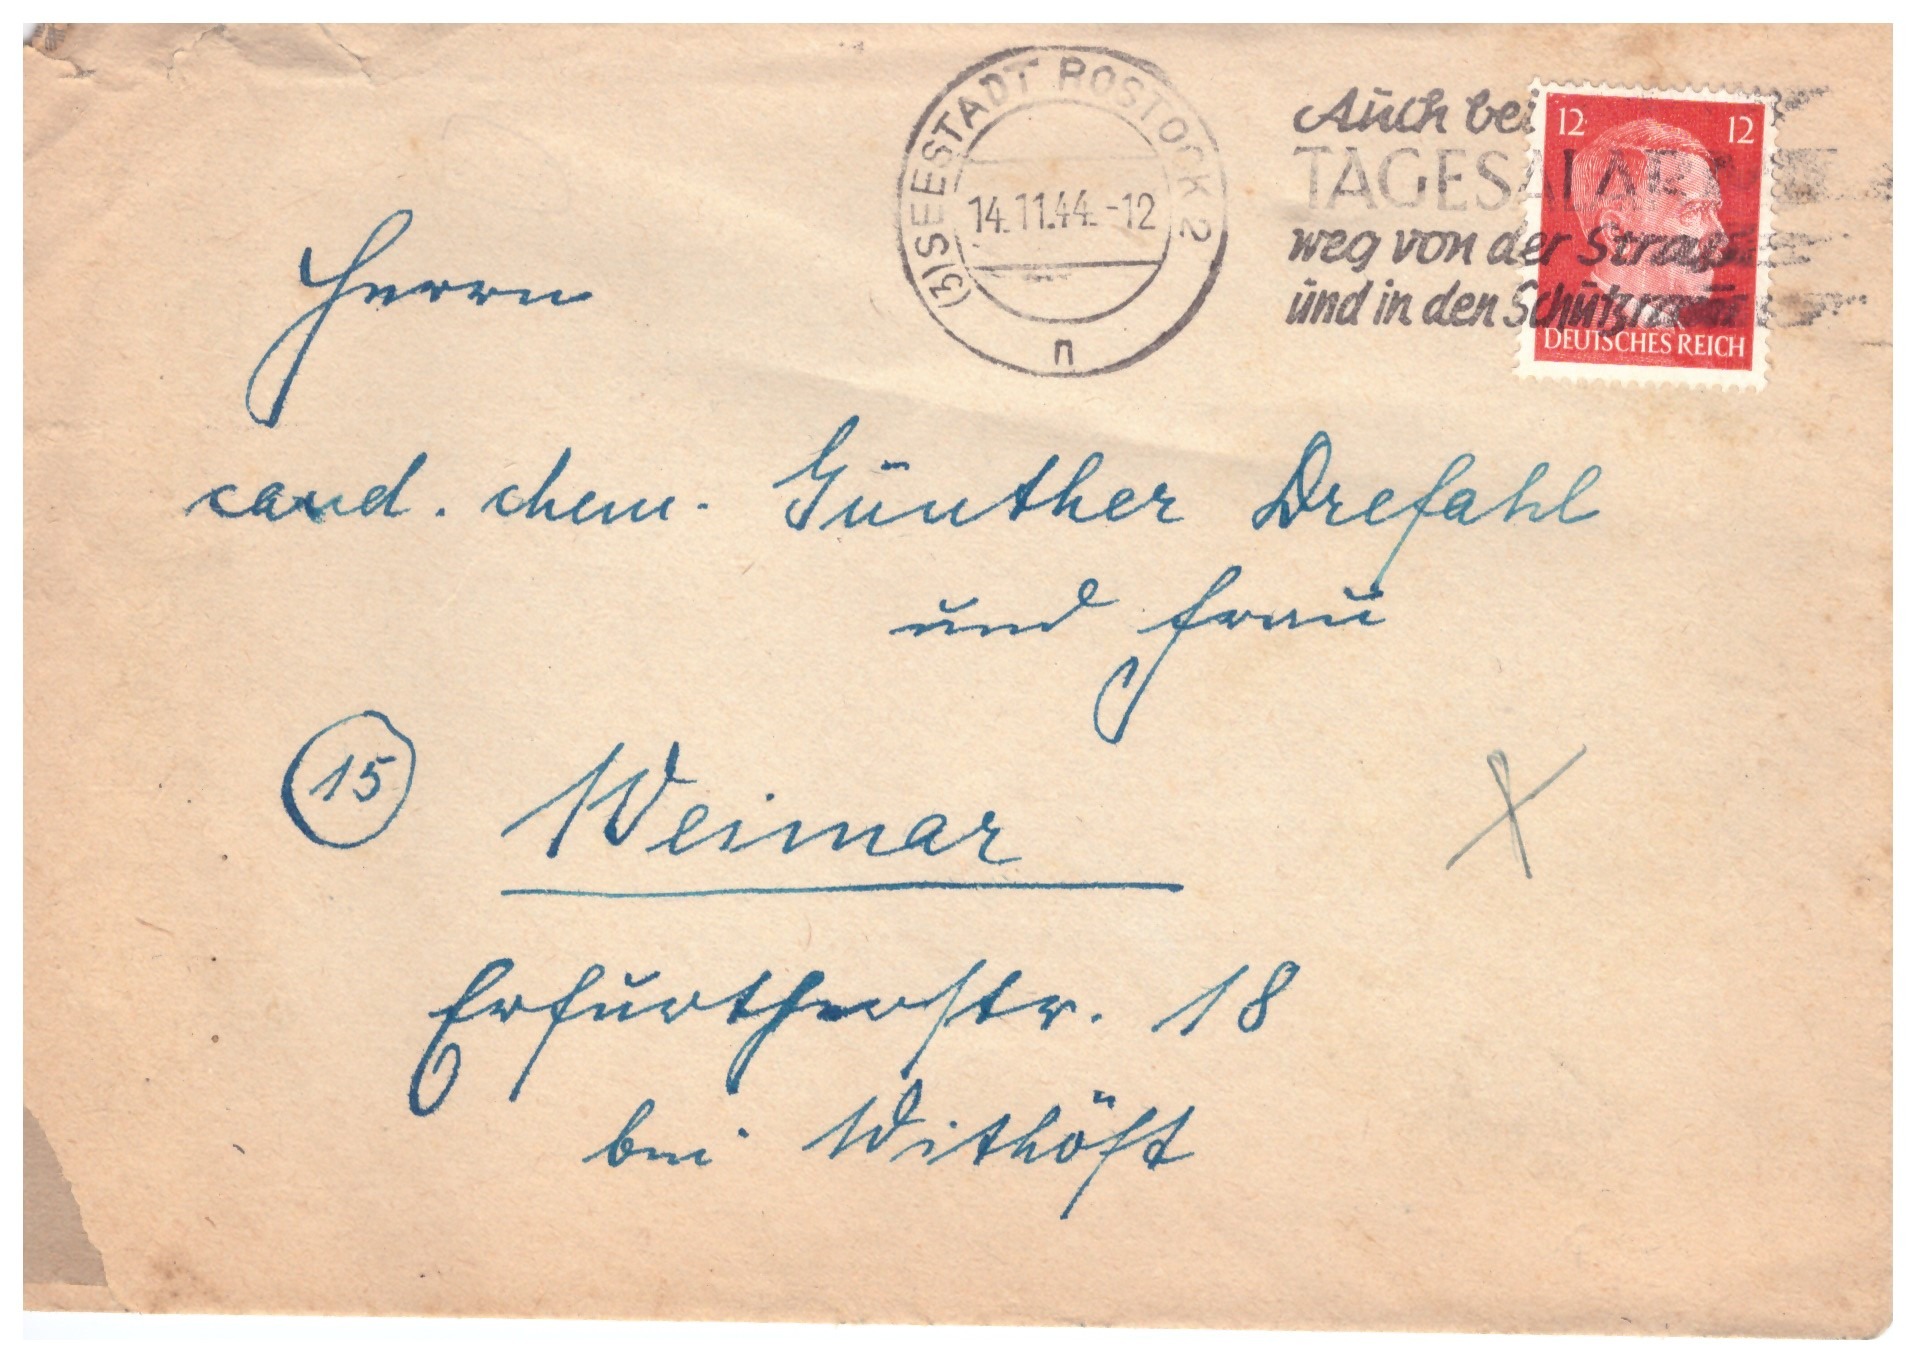 (3) SEESTADT ROSTOCK 2
14.11.44.-12
n
Auch bei
TAGESALARM
weg von der Straße
und in den Schutzraum
12 12
DEUTSCHES REICH
Herrn
cand. chem. Günther Drefahl
und Frau
15 Weimar
Erfurtherstr. 18
bei Withöft